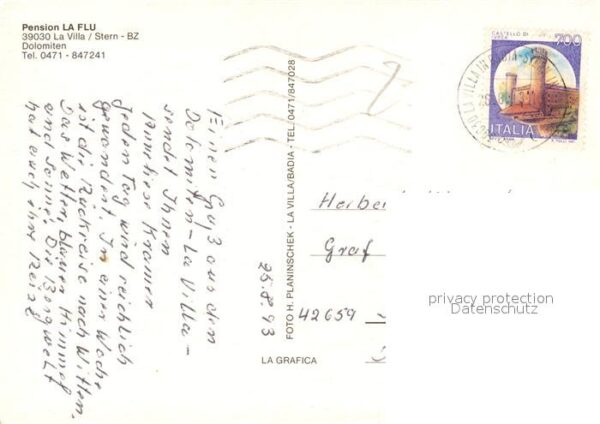 Pension LA FLU
39030 La Villa / Stern - BZ
Dolomiten
Tel. 0471 - 847241
Einen Gruß aus dem
Dolomiten-La Villa-
sendet Ihnen
Kramer
Jeden Tag wird reichlich
gewandert. In einer Woche
ist die Rückreise nach Witten.
Das Wetter, blauer Himmel
und Sonne. Die Bergwelt
hat auch ihre Reize
25.8.93
FOTO H. PLANINSCHEK - LA VILLA/BADIA - TEL. 0471/847028
LA GRAFICA
CASTELLO DI
IVREA
700
ITALIA
LA VILLA IN
Herbe
Graf
42659
privacy protection
Datenschutz